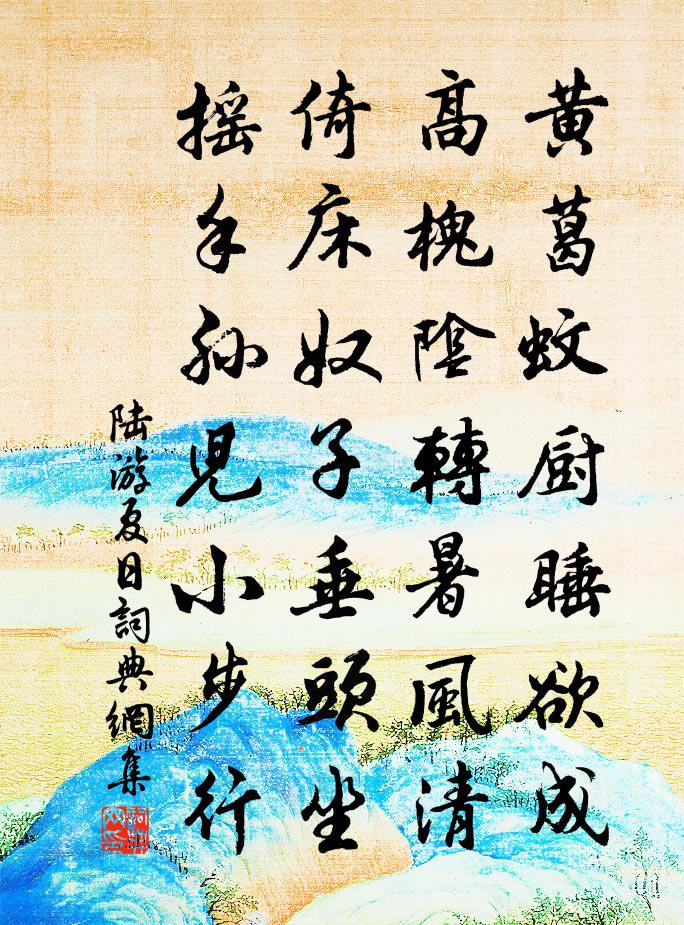 黃葛蚊厨睡欲成
高槐陰轉暑風清
倚床奴子垂頭坐
搖手孫兒小步行
陆游夏日詞典網集